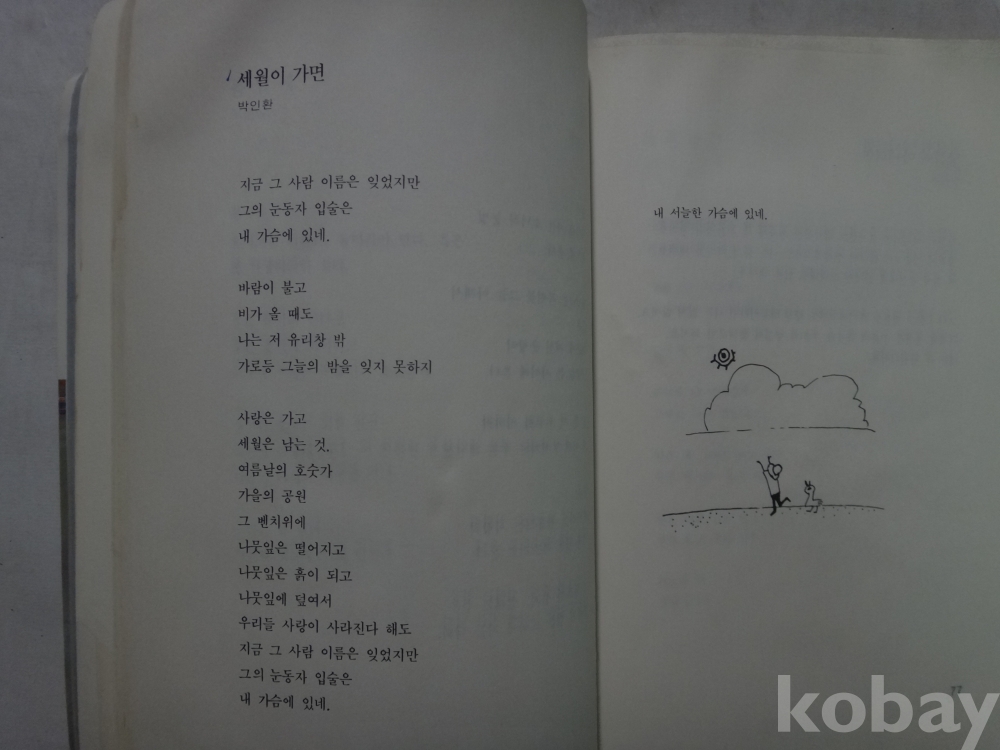 세월이 가면
박인환
지금 그 사람 이름은 잊었지만
그의 눈동자 입술은
내 가슴에 있네.
바람이 불고
비가 올 때도
나는 저 유리창 밖
가로등 그늘의 밤을 잊지 못하지
사랑은 가고
세월은 남는 것.
여름날의 호숫가
가을의 공원
그 벤치위에
나뭇잎은 떨어지고
나뭇잎은 흙이 되고
나뭇잎에 덮여서
우리들 사랑이 사라진다 해도
지금 그 사람 이름은 잊었지만
그의 눈동자 입술은
내 가슴에 있네.
내 서늘한 가슴에 있네.
77
kobay